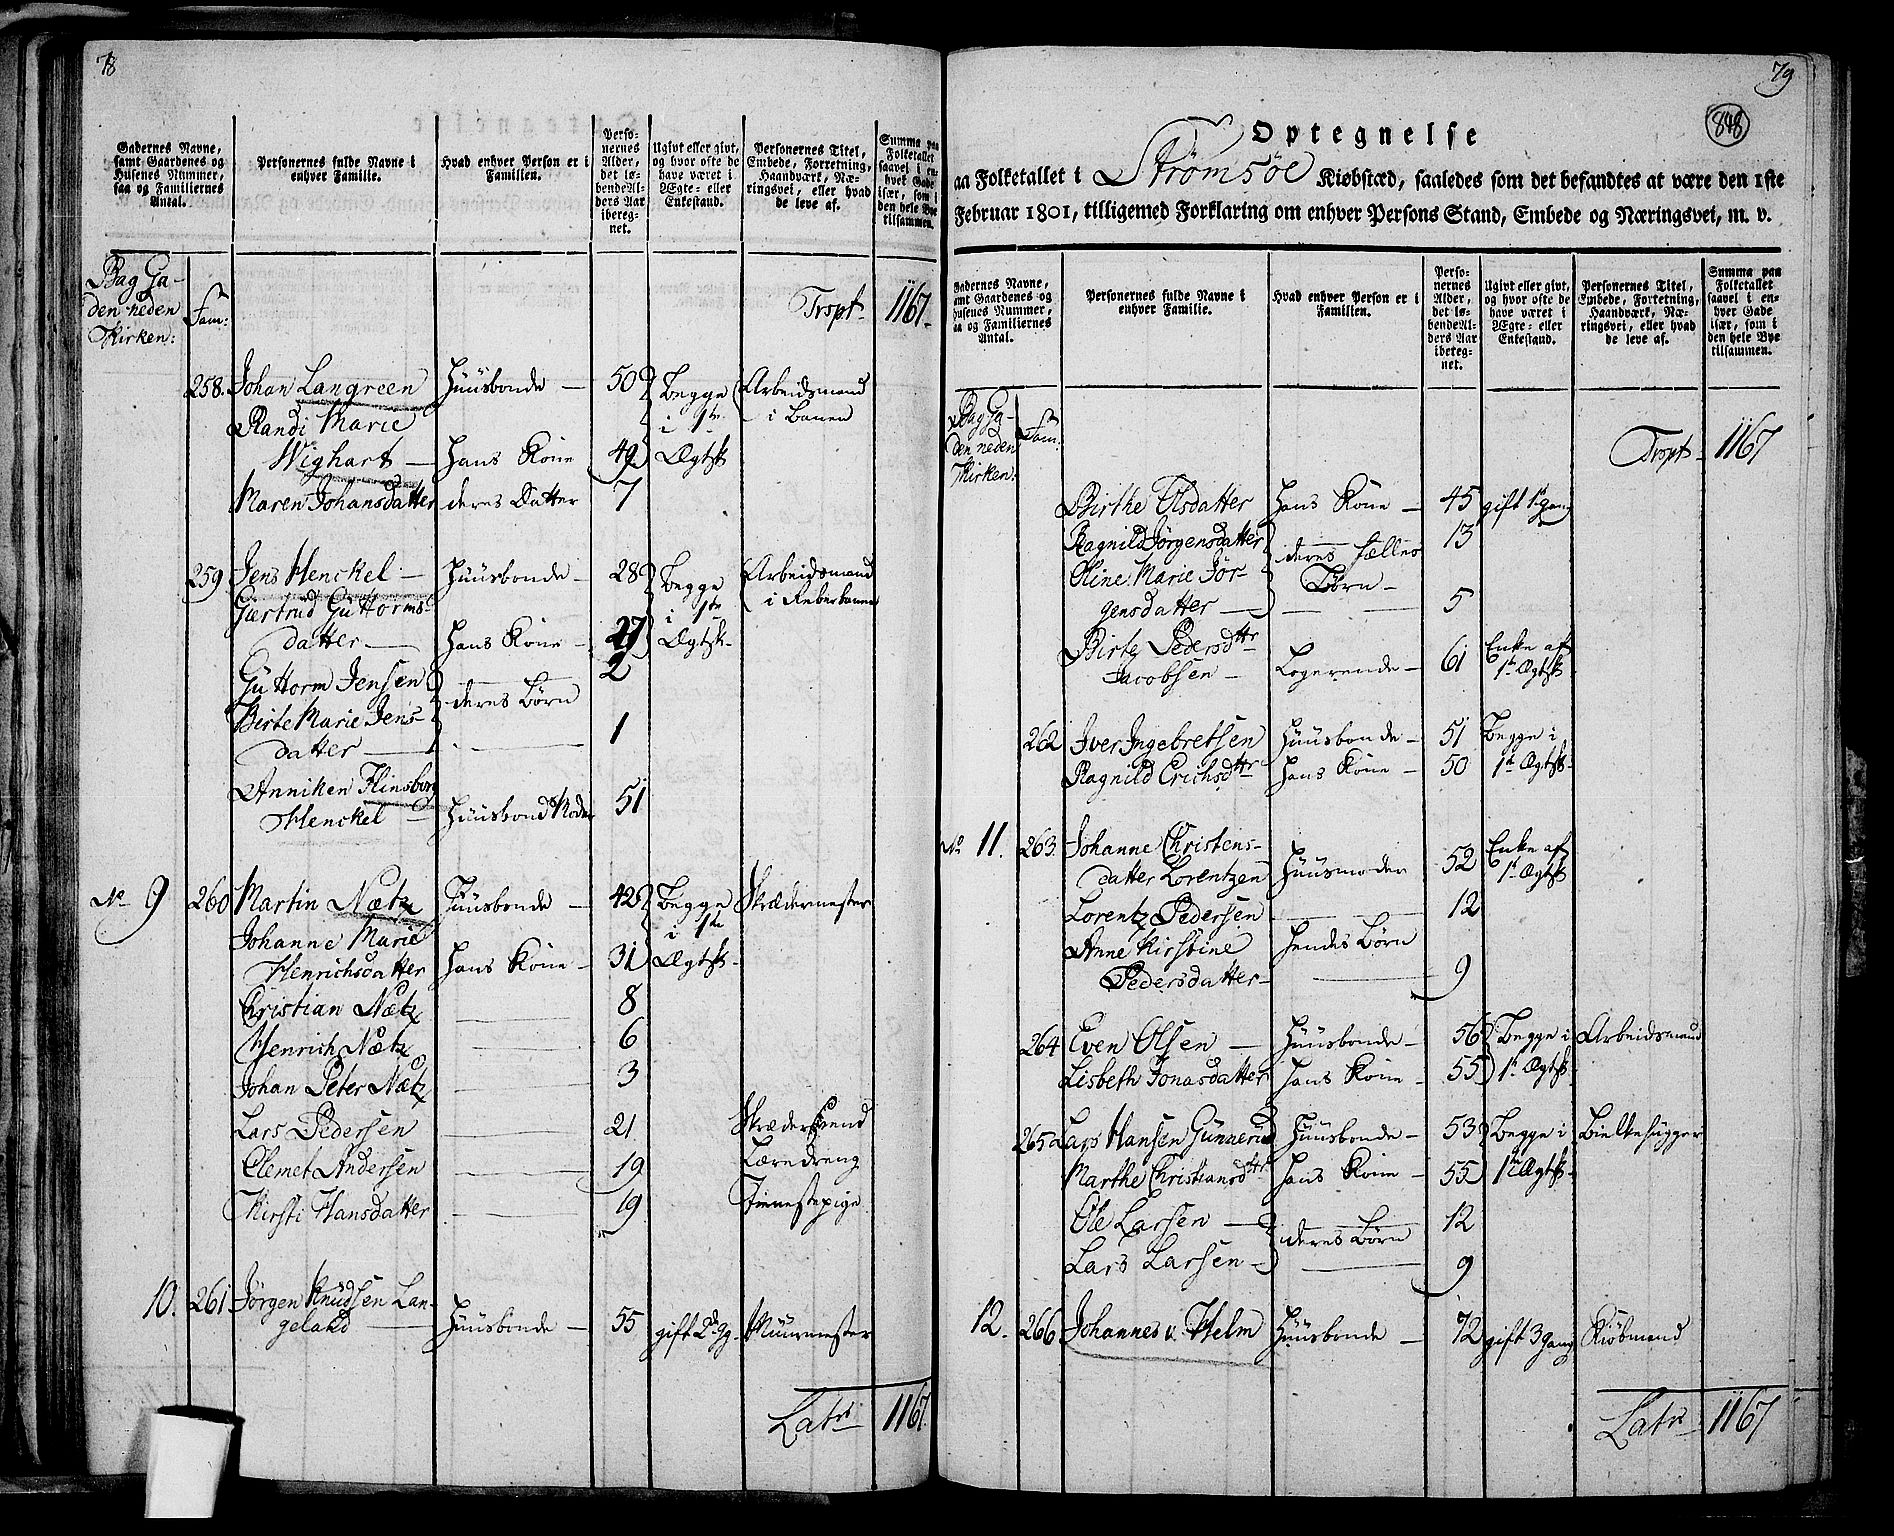 78
Gadernes Navne, samt Gaardenes og Husenes Nummer, saa og Familiernes Antal.
Personernes fulde Navne i enhver Familie.
Hvad enhver Person er i Familien.
Personernes Alder, det løbende Alders Aar iberegnet.
Ugivt eller givt, og hvor ofte de have været i Ægte- eller Enkestand.
Personernes Titel, Embede, Forretning, Haandværk, Næringsvei, eller hvad de leve af.
Summa paa Folketallet saavel i enhver Gade især, som i den hele Bye tilsammen.
Bag Ga-
den neden
Kirken:
Fam:
Trspt 1167.
258. Johan Langreen Huusbonde 50 Begge Arbeidsmand
Randi Marie i 1te i Banen
Wighart Hans Kone 49 Ægtsk
Maren Johansdatter deres Datter 7
259 Jens Henckel Huusbonde 28 Begge Arbeidsmand
Giertrud Guttorms- i 1te i Reberbanen
datter Hans Kone 27 Ægtsk
Guttorm Jensen 2
deres Børn
Birte Marie Jens-
datter 1
Anniken Flinsborg
Henckel Huusbonds Moder 51
No 9 260 Martin Nætz Huusbonde 42 Begge Skrædermester
Johanne Marie i 1te
Henrichsdatter Hans Kone 31 Ægtsk
Christian Nætz 8
Henrich Nætz 6
Johan Peter Nætz 3
Lars Pedersen 21 Skrædersvend
Clemet Andersen 19 Læredreng
Kirsti Hansdatter 19 Tienestepige
10. 261 Jørgen Knudsen Lan-
geland Huusbonde 55 gift 2 Gg. Muurmester
Latr 1167.
79
848
Optegnelse
paa Folketallet i Strømsøe Kiøbstæd, saaledes som det befandtes at være den 1ste
Februar 1801, tilligemed Forklaring om enhver Persons Stand, Embede og Næringsvei, m. v.
Gadernes Navne, samt Gaardenes og Husenes Nummer, saa og Familiernes Antal.
Personernes fulde Navne i enhver Familie.
Hvad enhver Person er i Familien.
Personernes Alder, det løbende Alders Aar iberegnet.
Ugivt eller givt, og hvor ofte de have været i Ægte- eller Enkestand.
Personernes Titel, Embede, Fortetning, Haandværk, Næringsvei, eller hvad de leve af.
Summa paa Folketallet saavel i enhver Gade især, som i den hele Bye tilsammen.
Bag Ga-
den neden
Kirken:
Fam:
Trspt 1167
Birthe Olsdatter Hans Kone 45 gift 1 gang
Ragnild Jørgensdatter 13
deres fælles
Oline Marie Jør- Børn
gensdatter 5
Birte Pedersdttr Enke af
Jacobsen Logerende 61 1te Ægtsk
262 Iver Ingebretsen Huusbonde 51 Begge i
Ragnild Erichsdttr Hans Kone 50 1te Ægtsk.
No 11. 263. Johanne Christens- Enke af
datter Lorentzen Huusmoder 52 1te Ægtsk
Lorentz Pedersen 12
Anne Kirstine Hendes Børn
Pedersdatter 9
264 Even Olsen Huusbonde 56 Begge i Arbeidsmand
Lisbeth Jonasdatter Hans Kone 55 1te Ægtsk
265 Lars Hansen Gunnerud Huusbonde 53 Begge i Bielkehugger
Marthe Christiansdttr Hans Kone 55 1te Ægtsk
Ole Larsen 12
deres Børn
Lars Larsen 9
12. 266 Johannes v. Helm Huusbonde 72 gift 3 gang Kiøbmand
Latr 1167